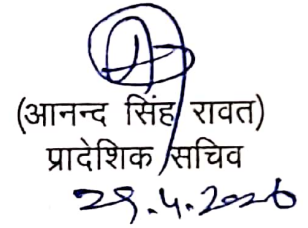 (आनन्द सिंह रावत)
प्रादेशिक सचिव
29.4.2026